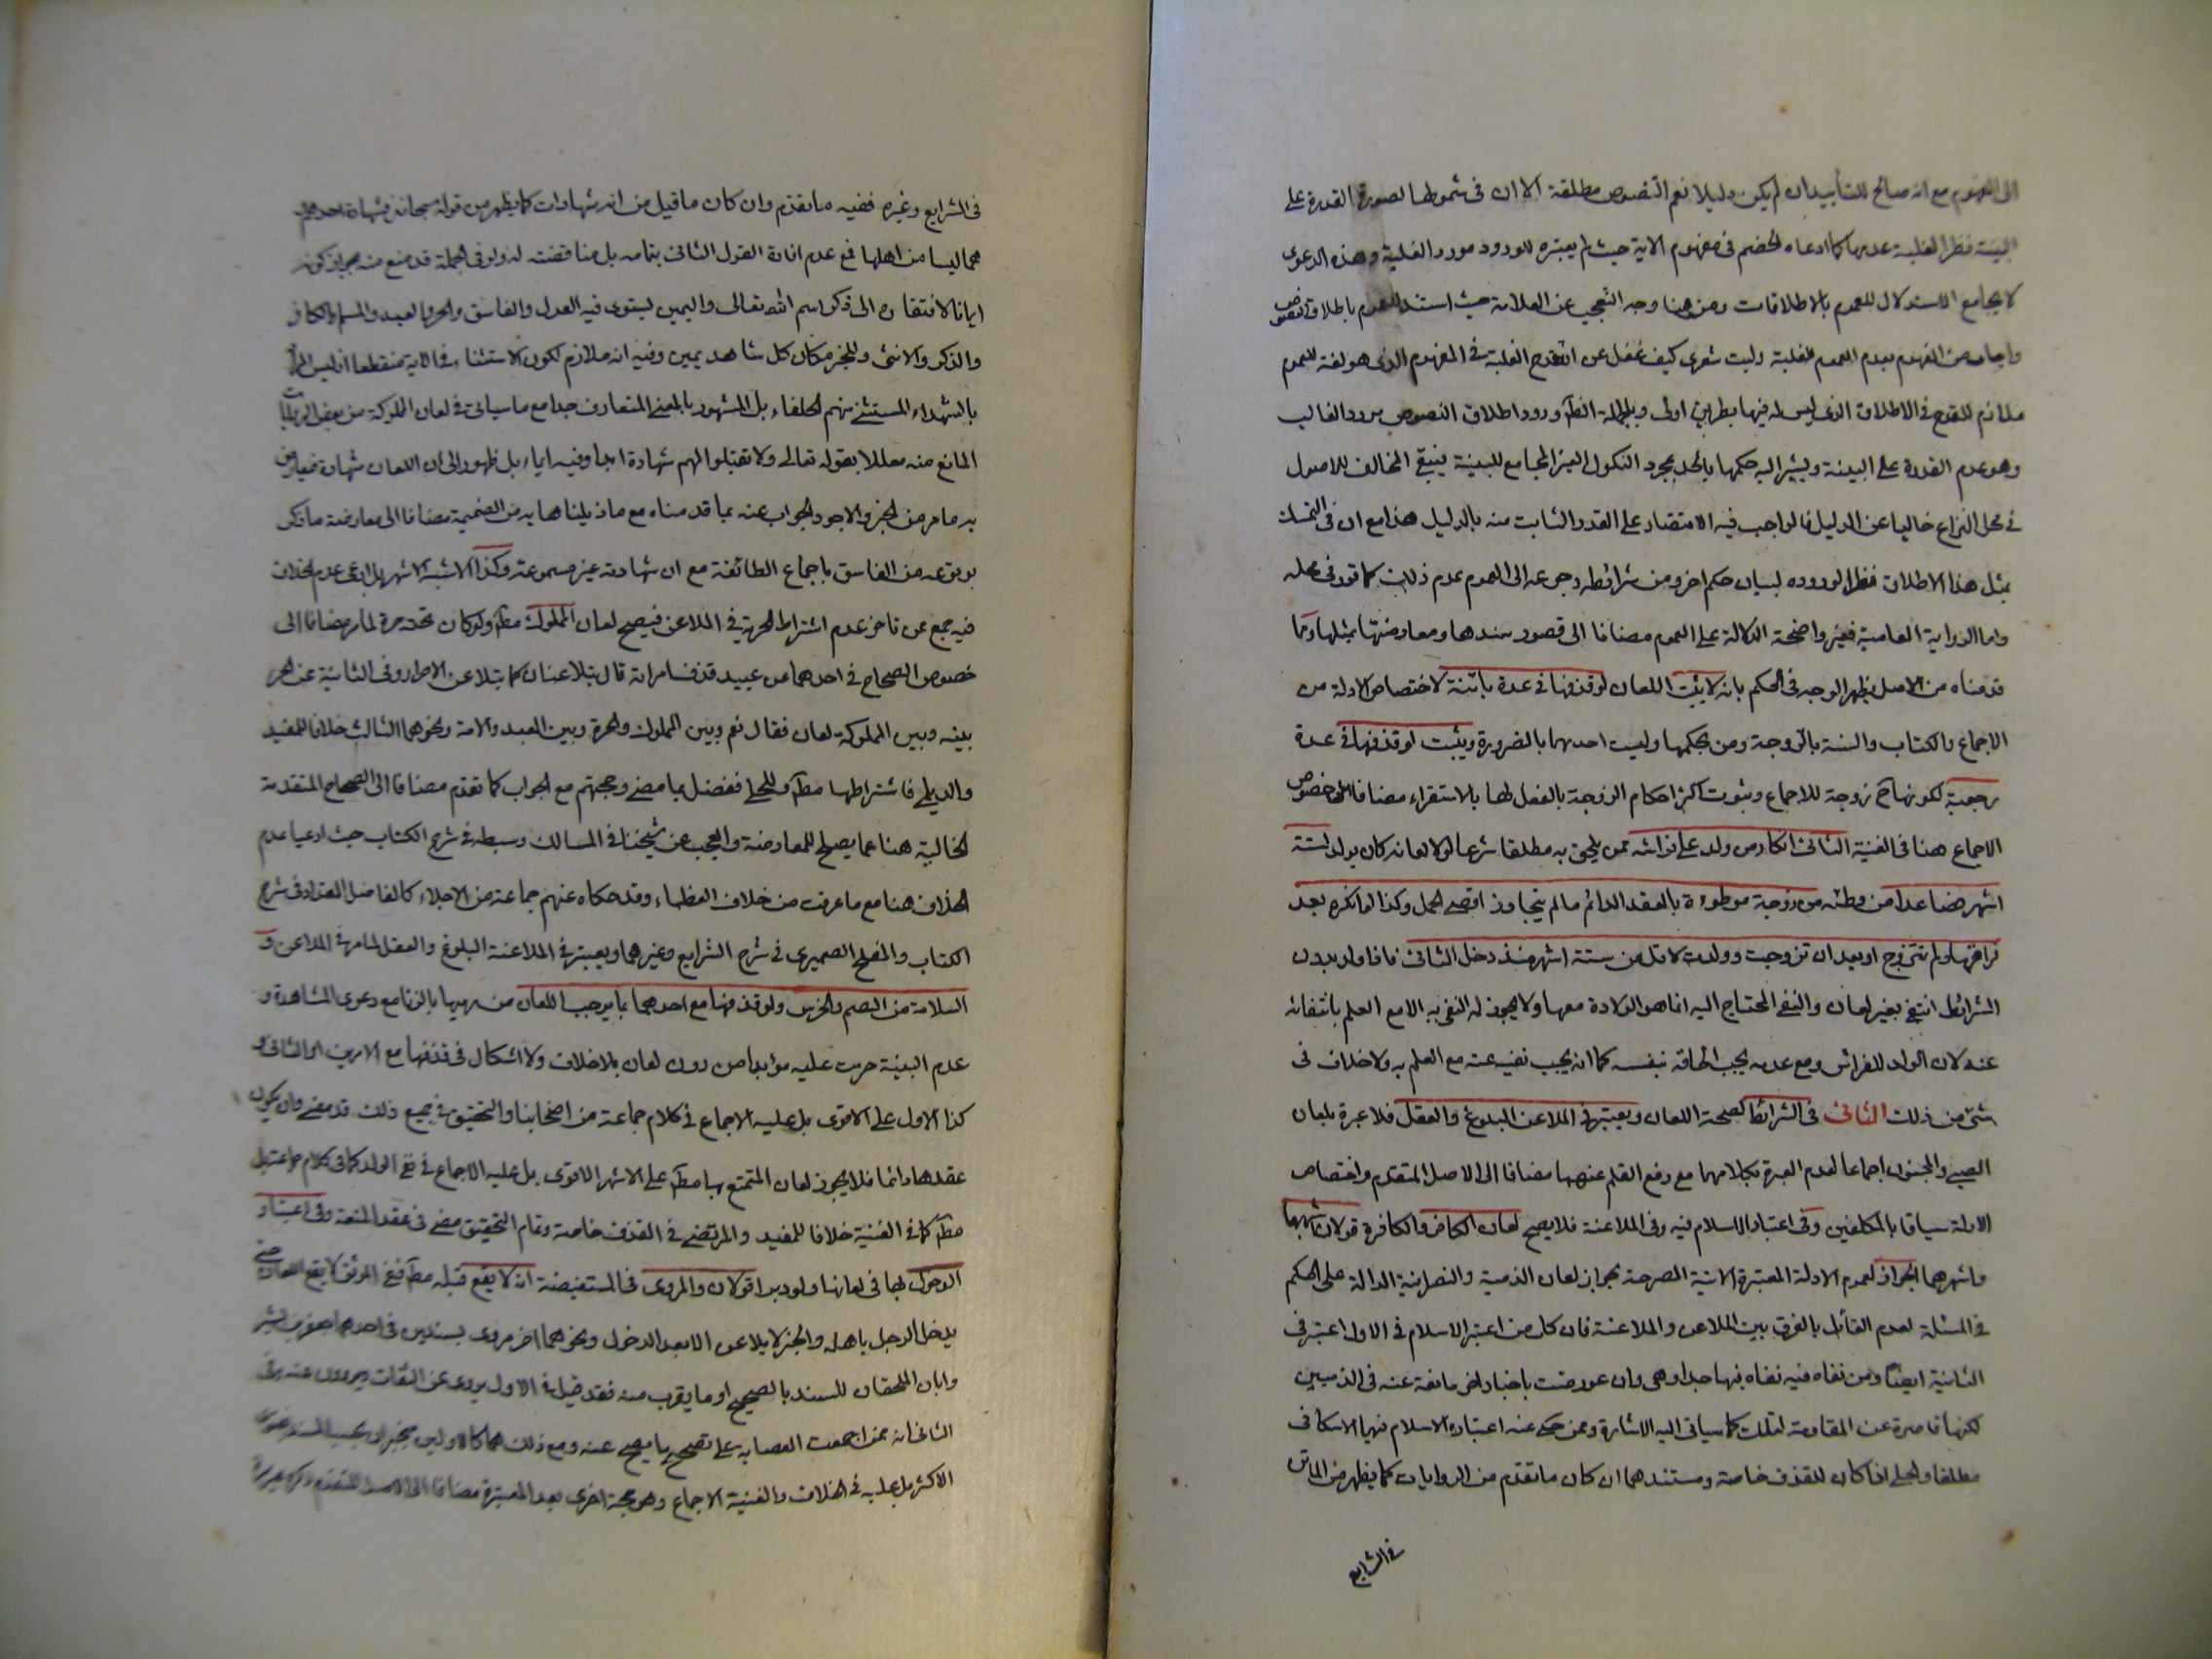 الى العموم مع انه صالح للتأييد ان لم يكن دليلا نعم النصوص مطلقة الا ان فى شمولها لصورة القدرة على
البينة نظرا لغلبة عدمها كما ادعاه الخصم فى مفهوم الاية حيث لم يعتبره للورود مورد الغلبة وهذه الدعوى
لا يجامع الاستدلال للعموم بالاطلاقات ومن هنا وجه التعجب عن العلامة حيث استند للعموم باطلاق النصوص
واجاب عن المفهوم بعدم العموم للغلبة وليت شعرى كيف غفل عن انقداح الغلبة فى المفهوم الذى هو لغة للعموم
ملازم للقدح فى الاطلاق الذى ليس له فيها بطريق اولى وبالجملة الظ ورود اطلاق النصوص مورد الغالب
وهو عدم القدرة على البينة ويشير اليه حكمها بالحد بمجرد النكول الغير المجامع للبينة فيبقى المخالف للاصول
فى محل النزاع خاليا عن الدليل فالواجب فيه الاقتصار على القدر الثابت منه بالدليل هذا مع ان فى التمسك
بمثل هذا الاطلاق نظرا لوروده لبيان حكم اخر ومن شرائطه رجوعه الى العموم عدم ذلك كما قرر فى محله
واما الرواية العامية فغير واضحة الدلالة على العموم مضافا الى قصور سندها ومعارضتها بمثلها ومما
قدمناه من الاصل يظهر الوجه فى الحكم بانه لا يثبت اللعان لو قذفها فى عدة بائنة لاختصاص الادلة من
الاجماع والكتاب والسنة بالزوجة ومن بحكمها وليست احدهما بالضرورة ويثبت لو قذفها فى عدة
رجعية لكونها ح زوجة للاجماع وثبوت اكثر احكام الزوجة بالفعل لها بالاستقراء مضافا الى خصوص
الاجماع هنا فى الغنية الثانى انكار من ولد على فراشه ممن يلحق به مطلقا شرعا لولا لعانه كان يولد لستة
اشهر فصاعدا من وطئه من زوجة موطوءة بالعقد الدائم ما لم يتجاوز اقصى الحمل وكذا لو انكره بعد
فراقها ولم تتزوج او بعد ان تزوجت وولدت لاقل من ستة اشهر منذ دخل الثانى فاذا ولد بدون
الشرائط انتفى بغير لعان والنفى المحتاج اليه انما هو الولادة معها ولا يجوز له النفى به الا مع العلم بانتفائه
عنه لان الولد للفراش ومع عدمه يجب الحاقه بنفسه كما انه يجب نفيه عنه مع العلم به ولا خلاف فى
شئ من ذلك الثانى فى الشرائط لصحة اللعان ويعتبر فى الملاعن البلوغ والعقل فلا عبرة بلعان
الصبى والمجنون اجماعا لعدم العبرة بكلامهما مع رفع القلم عنهما مضافا الى الاصل المتقدم واختصاص
الادلة سياقا بالمكلفين وفى اعتبار الاسلام فيه وفى الملاعنة فلا يصح لعان الكافر والكافرة قولان اشبههما
واشهرهما الجواز لعموم الادلة المعتبرة الاتية المصرحة بجواز لعان الذمية والنصرانية الدالة على الحكم
فى المسئلة لعدم القائل بالفرق بين الملاعن والملاعنة فان كل من اعتبر الاسلام فى الاول اعتبره فى
الثانية ايضا ومن نفاه فيه نفاه فيها جدا وهى وان عورضت باخبار اخر مانعة عنه فى الذميين
لكنها قاصرة عن المقاومة لتلك كما سياتى اليه الاشارة وممن حكى عنه اعتبار الاسلام فيهما الاسكافى
مطلقا والحلى اذا كان للقذف خاصة ومستندهما ان كان ما تقدم من الروايات كما يظهر من الماتن
فى الشرايع
فى الشرايع وغيره ففيه ما تقدم وان كان ما قيل من انه شهادات كما يظهر من قوله سبحانه فشهادة احدهم
هما ليسا من اهلها فمع عدم افادة القول الثانى بتمامه بل مناقضته له ولو فى الجملة قد منع منه بجواز كونه
ايمانا لافتقاره الى ذكر اسم الله تعالى واليمين يستوى فيه العدل والفاسق والحر والعبد والمسلم والكافر
والذكر والانثى وللخبر مكان كل شاهد يمين وفيه انه ملازم لكون الاستثناء فى الاية منقطعا اذ ليس المراد
بالشهداء المستثنى منهم الحلفاء بل الشهود بالمعنى المتعارف جدا مع ما سياتى فى لعان المملوكة من بعض الروايات
المانع منه معللا بقوله تعالى ولا تقبلوا لهم شهادة ابدا وفيه ايماء بل ظهور الى ان اللعان شهادة فيعارض
به ما مر من الخبر والاجود الجواب عنه بما قدمناه مع ما ذيلناها به من الضميمة مضافا الى معارضة ما ذكر
بوقوعه من الفاسق باجماع الطائفة مع ان شهادته غير مسموعة وكذا الاشبه الاشهر بل ادعى عدم الخلاف
فيه جمع ممن تاخر عدم اشتراط الحرية فى الملاعن فيصح لعان المملوك مط ولو كان تحته حرة لما مر مضافا الى
خصوص الصحاح فى احدهما عن عبيد قذف امراته قال يتلاعنان كما يتلاعن الاحرار وفى الثانية عن الحر
بينه وبين المملوكة لعان فقال نعم وبين المملوك والحرة وبين العبد والامة ونحوهما الثالث خلافا للمفيد
والديلمى فاشترطها مط وللحلى ففصل بما مضى وحجتهم مع الجواب كما تقدم مضافا الى الصحاح المتقدمة
الخالية هنا عما يصلح للمعارضة والعجب عن شيخنا فى المسالك وسبطه فى شرح الكتاب حيث ادعيا عدم
الخلاف هنا مع ما عرفت من خلاف العظماء وقد حكاه عنهم جماعة من الاجلاء كالفاضل المقداد فى شرح
الكتاب والمفلح الصميرى فى شرح الشرايع وغيرهما ويعتبر فى الملاعنة البلوغ والعقل لما مر فى الملاعن و
السلامة من الصمم والخرس ولو قذفها مع احدهما بما يوجب اللعان من رميها بالزنا مع دعوى المشاهدة و
عدم البينة حرمت عليه مؤبدا من دون لعان بلا خلاف ولا اشكال فى قذفها مع الامرين اما الثانى و
كذا الاول على الاقوى بل عليه الاجماع فى كلام جماعة من اصحابنا والتحقيق فى جميع ذلك قد مضى وان يكون
عقدها دائما فلا يجوز لعان المتمتع بها مط على الاشهر الاقوى بل عليه الاجماع فى نفى الولد كما فى كلام جماعة بل
مط كما فى الغنية خلافا للمفيد والمرتضى فى القذف خاصة وتمام التحقيق مضى فى عقد المتعة وفى اعتبار
الدخول بها فى لعانها ولو دبرا قولان والمروى فى المستفيضة انه لا يقع قبله مط ففى الموثق لا يقع اللعان حتى
يدخل الرجل باهله والخبر لا يلاعن الا بعد الدخول ونحوهما اخر مروى بسندين فى احدهما
وابان الملحقان للسند بالصحيح او ما يقرب منه فقد قيل فى الاول يروى عن الثقات ويروون عنه وفى
الثانى انه ممن اجمعت العصابة على تصحيح ما يصح عنه ومع ذلك هما كالاولين
الاكثر بل عليه فى الخلاف والغنية الاجماع وهو حجة اخرى بعد المعتبرة مضافا الى الاصل المتقدم ذكره